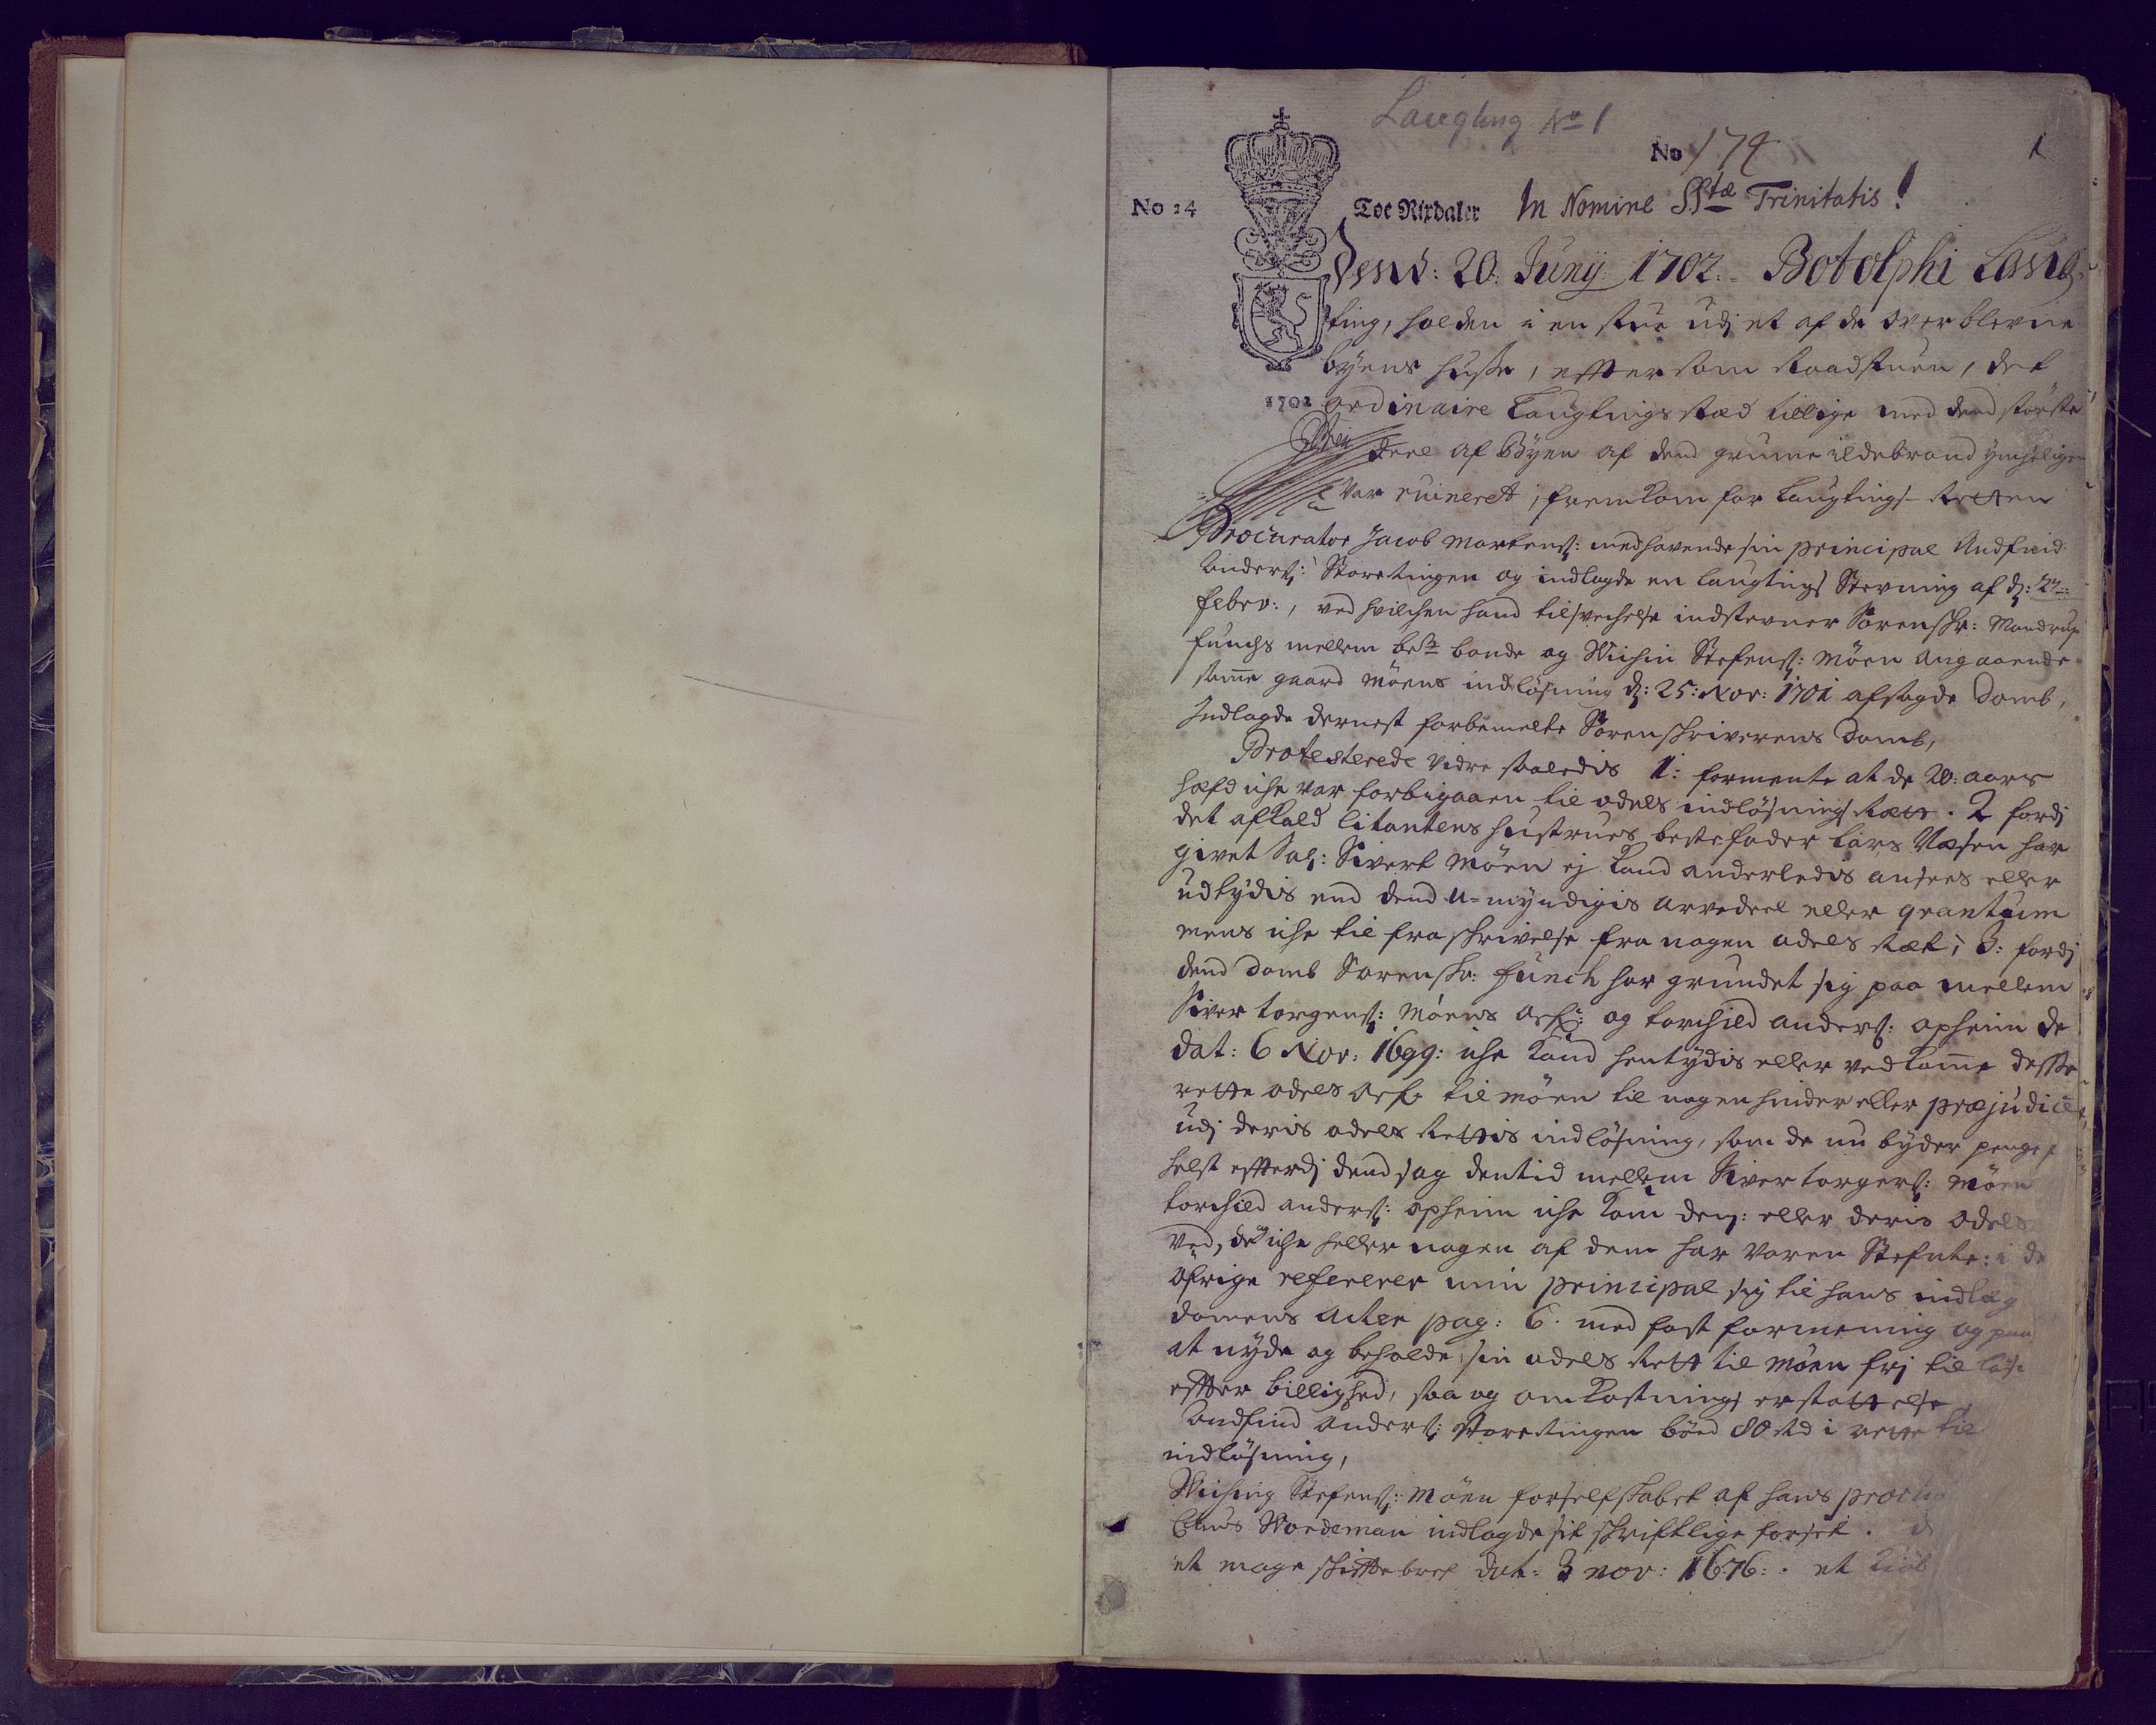 Laugting No 1
No 174
1
No 14
Toe Rixdaler In Nomine SStæ Trinitatis!
Dend: 20. Junij 1702. Botolphi Laug
ting, holden i en stue udj et af de overblevne
byens huse, effter som Raadstuen, det
1702 ordinaire Laugtings stæd tillige med dend störste
deel af Byen af dend grumme ildebrand yncheligen
var ruineret, fremkom for Laugtings-Retten
Procurator Jacob Mortens: medhavende sin principal Andfind
Anders: Storetingen og indlagde en laugtings Stevning af d:
Febrv:, ved hvilchen hand til svechelse indstevner Sorenskr: Mandrup
Funchs mellem bete bonde og Wiching Stefens: Möen angaaende
samme gaard Möens indlösning d: 25: Nov: 1701 afsagde Domb,
Indlagde dernest forbemelte Sorenskriverens Domb,
Protesterede vidre saaledis 1: formente at de 20: aars
hæfd iche var forbigaaen til odels indlösnings Rætt. 2 fordj
det afkald Citantens hustrues bestefader Lars Næsen har
givet Sal: Sivert Möen ej kand anderledis ansees eller
udtydis end dend u=myndigis arvedeel eller qvantum
mens iche til fraskrivelse fra nogen odels Ræt, 3: fordj
dend Domb Sorenskr: Funch har grundet sig paa mellem
Siver torgens: Möens arf: og torchild Anders: Opheim de
dat: 6 Nov: 1699: iche kand hentydis eller vedkomme desse
rette odels arf. til Möen til nogen hinder eller præjudice
udj deris odels Rettis indlösning, som de nu byder penge
helst efterdj dend sag dentid mellem Siver torgers: Möen
torchild Anders: Opheim iche kom dem: eller deris Odels
ved, det iche heller nogen af dem har varen Stefnte: i de
öfrige refererer min principal sig til hans indlæg
domens Acter pag: 6. med fast formening og paa
at nyde og beholde sin odels Rett til Möen frj til lös
effter billighed, saa og omkostnings erstattelse
Andfind Anders: Storetingen böd 80 Rd i rette til
indlösning,
Wiching Stefens: Möen forselfskabet af hans procu
Claus Wordeman indlagde sit skriftlige forset.
et mage skiftebref dat: 3 nov: 1676: . et kiöb